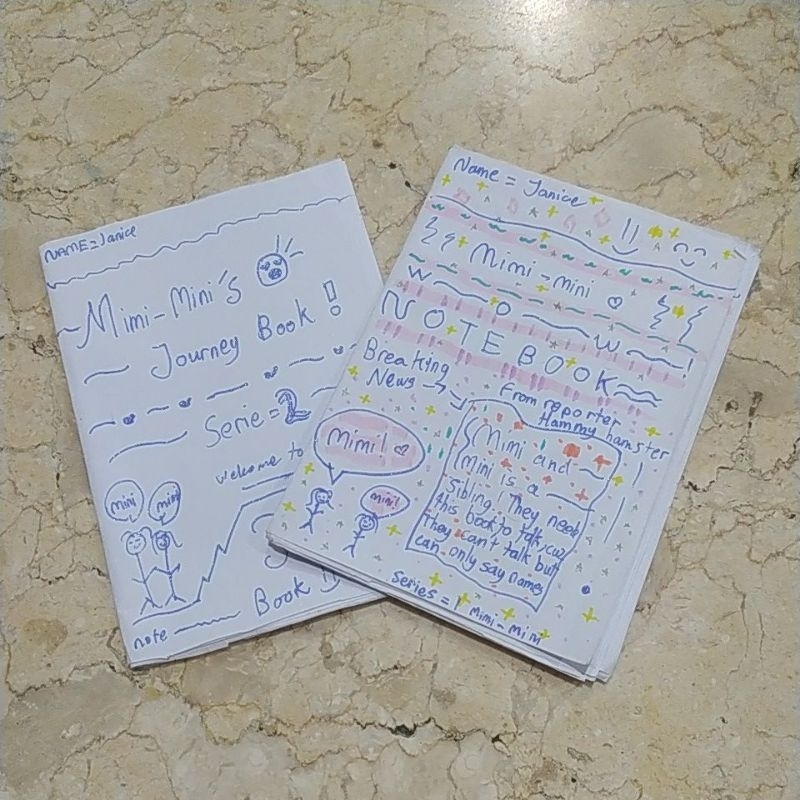 NAME=Janice
Mimi-Mini's
Journey Book!
Serie=2
Welcome to
mini
mini
Book
note
Name = Janice
Mimi-mini
WOW!
NOTEBOOK
Breaking
News
From reporter
Hammy hamster
Mimi!
mini!
Mimi and
Mini is a
Sibling! They need
this book to talk, cuz
They can't talk but
can only say names
Series = 1 Mimi-Mini